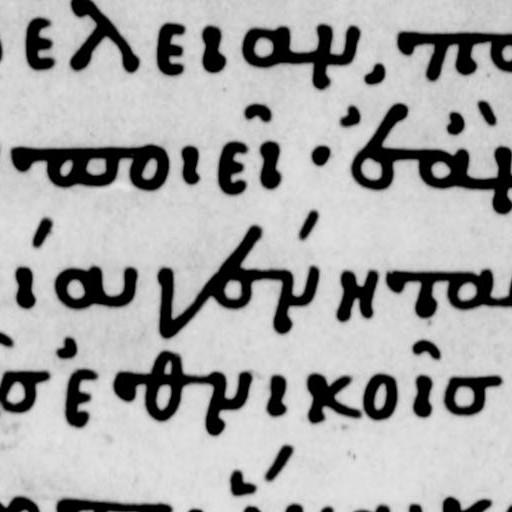 ελειαν, πο
ποιεῖ· ὅτἂν
ίαι γένηται
σ ἐθνικοῖσ